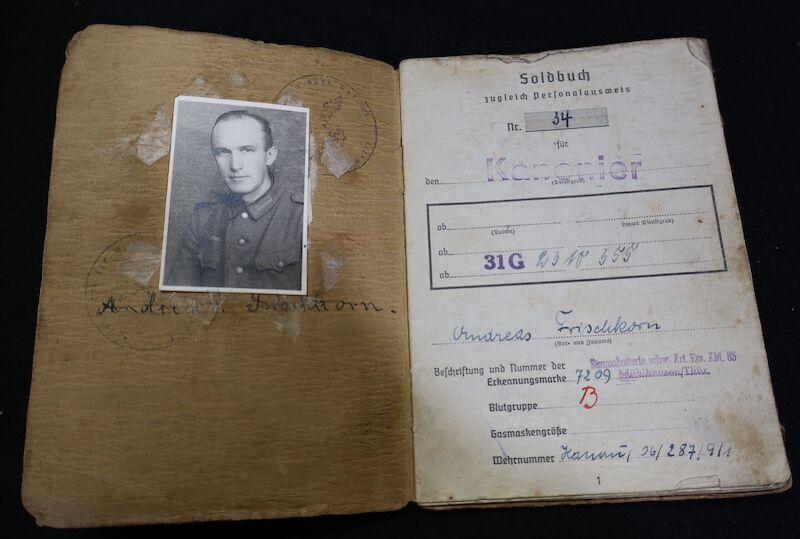 Andreas Frischkorn.
Soldbuch
zugleich Personalausweis
Nr. 34
für
den Kanonier
(Dienstgrad)
ab
(Datum) (neuer Dienstgrad)
ab
ab 31G 2310 355
Andreas Frischkorn
(Vor- und Zuname)
Beschriftung und Nummer der
Erkennungsmarke 7209 Stammbatterie schw. Art. Ers. Abt. 65
Mühlhausen/Thür.
Blutgruppe B
Gasmaskengröße
Wehrnummer Hanau, 06/287/9/1
1